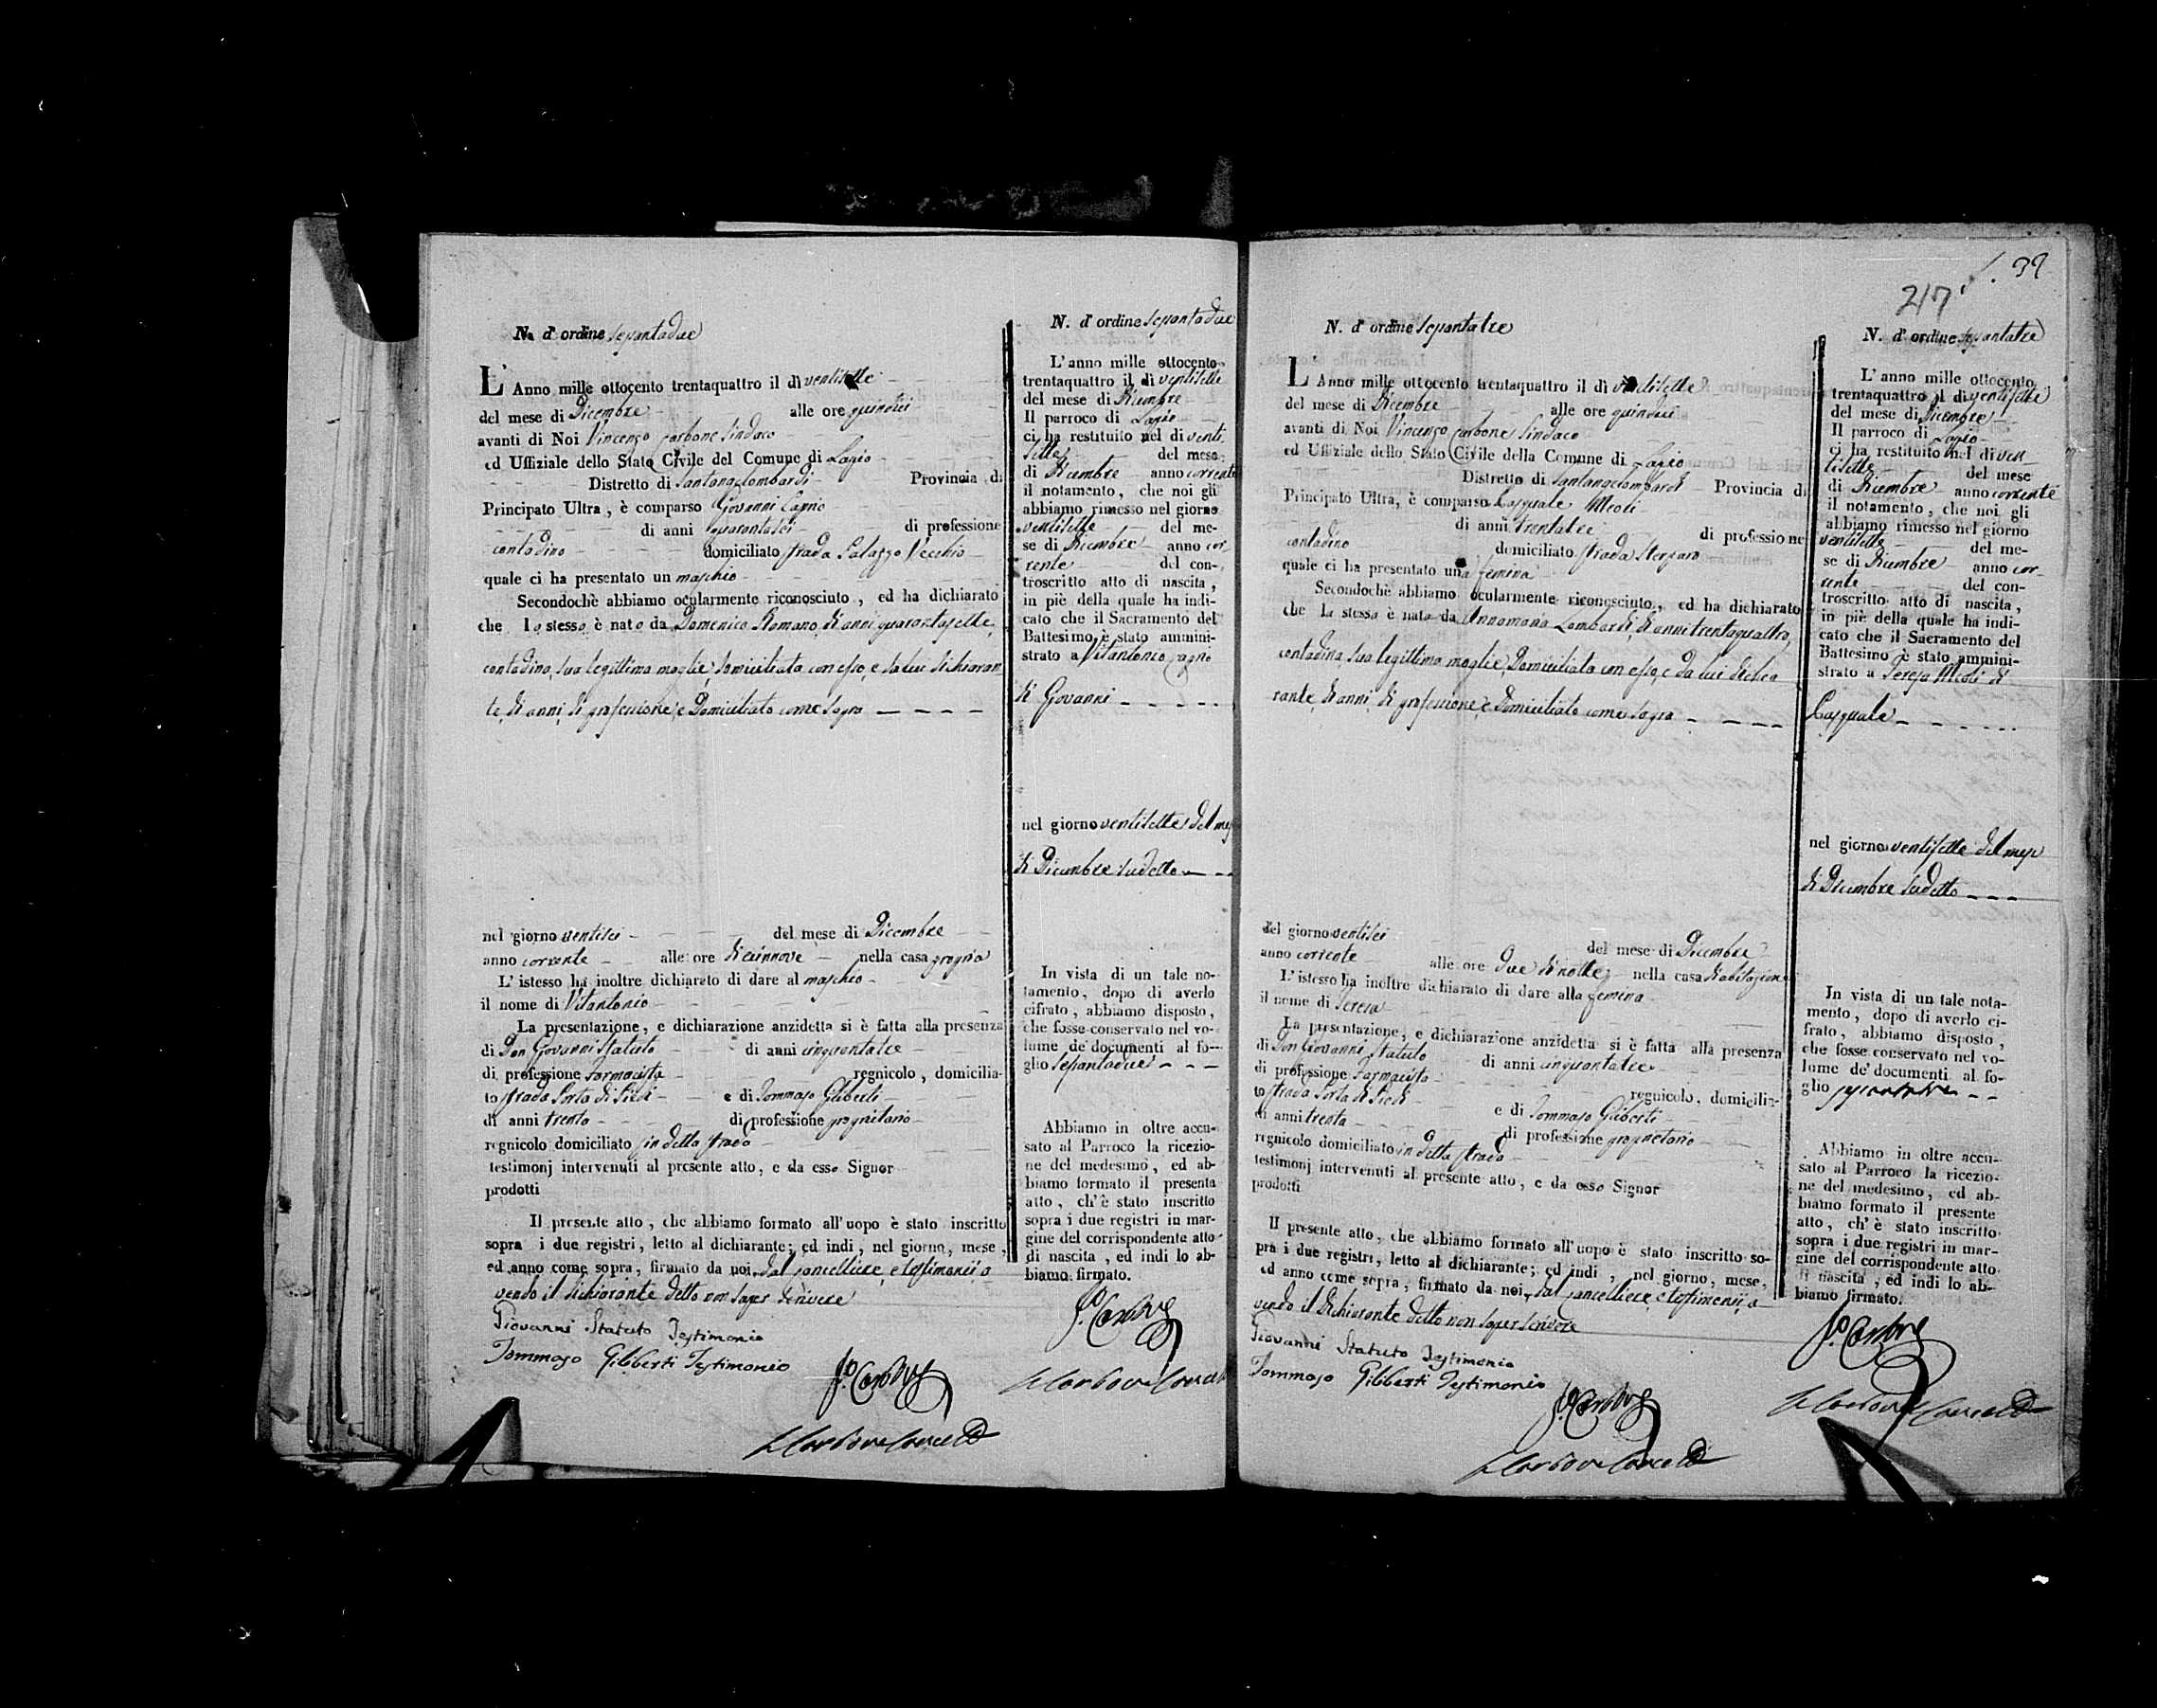 N. d'ordine Sessantadue
L'Anno mille ottocento trentaquattro il dì ventisette
del mese di Dicembre alle ore quindici
avanti di Noi Vincenzo Carbone Sindaco
ed Uffiziale dello Stato Civile del Comune di
Distretto di Provincia di
Principato Ultra, è comparso Giovanni
di anni quarantasei di professione
contadino domiciliato strada Palazzo Vecchio
quale ci ha presentato un maschio
Secondochè abbiamo ocularmente riconosciuto, ed ha dichiarato
che lo stesso è nato da Domenica Romano, di anni quarantasette,
contadina, sua legittima moglie, domiciliata con esso, e da lui dichiaran
te, di anni, di professione, e Domiciliato come sopra
nel giorno ventisei del mese di Dicembre
anno corrente alle ore diecinnove nella casa propria
L'istesso ha inoltre dichiarato di dare al maschio
il nome di Vitantonio
La presentazione, e dichiarazione anzidetta si è fatta alla presenza
di Don Giovanni Statuto di anni cinquantatre
di professione Farmacista regnicolo, domicilia-
to strada Porta di Piedi e di Tommaso Gliberti
di anni trenta di professione proprietario
regnicolo domiciliato in detta strada
testimonj intervenuti al presente atto, e da esso Signor
prodotti
Il presente atto, che abbiamo formato all'uopo è stato inscritto
sopra i due registri, letto al dichiarante; ed indi, nel giorno, mese,
ed anno come sopra, firmato da noi, dal cancelliere, e testimonii, a
vendo il dichiarante detto non saper scrivere
Giovanni Statuto Testimonio
Tommaso Giliberti Testimonio
N. d'ordine Sessantadue
L'anno mille ottocento
trentaquattro il dì ventisette
del mese di Dicembre
Il parroco di
ci ha restituito nel dì venti
sette del mese
di Dicembre anno corrente
il notamento, che noi gli
abbiamo rimesso nel giorno
ventisette del me-
se di Dicembre anno cor-
rente del con-
troscritto atto di nascita,
in piè della quale ha indi-
cato che il Sacramento del
Battesimo è stato ammini-
strato a Vitantonio
di Giovanni
nel giorno ventisette del mese
di Dicembre sudetto
In vista di un tale no-
tamento, dopo di averlo
cifrato, abbiamo disposto,
che fosse conservato nel vo-
lume de' documenti al fo-
glio Sessantadue
Abbiamo in oltre accu-
sato al Parroco la ricezio-
ne del medesimo, ed ab-
biamo formato il presente
atto, ch'è stato inscritto
sopra i due registri in mar-
gine del corrispondente atto
di nascita, ed indi lo ab-
biamo firmato.
217
N. d'ordine Sessantatre
L'Anno mille ottocento trentaquattro il dì ventisette
del mese di Dicembre alle ore quindici
avanti di Noi Vincenzo Carbone Sindaco
ed Uffiziale dello Stato Civile della Comune di
Distretto di Provincia di
Principato Ultra, è comparso Pasquale Meoli
di anni trentatre di professione
contadino domiciliato strada
quale ci ha presentato una femina
Secondochè abbiamo ocularmente riconosciuto, ed ha dichiarato
che la stessa è nata da Annamaria Lombardi, di anni trentaquattro,
contadina, sua legittima moglie, Domiciliata con esso, e da lui dichia
rante, di anni, di professione, e Domiciliato come sopra
del giorno ventisei del mese di Dicembre
anno corrente alle ore due di notte nella casa di abitazione
L'istesso ha inoltre dichiarato di dare alla femina
il nome di Teresa
La presentazione, e dichiarazione anzidetta si è fatta alla presenza
di Don Giovanni Statuto di anni cinquantatre
di professione Farmacista regnicolo, domicilia-
to strada Porta di Piedi e di Tommaso Gliberti
di anni trenta di professione proprietario
regnicolo domiciliato in detta strada
testimonj intervenuti al presente atto, e da esso Signor
prodotti
Il presente atto, che abbiamo formato all'uopo è stato inscritto so-
pra i due registri, letto al dichiarante; ed indi, nel giorno, mese,
ed anno come sopra, firmato da noi, dal cancelliere, e testimonii, a
vendo il dichiarante detto non saper scrivere
Giovanni Statuto Testimonio
Tommaso Giliberti Testimonio
N. d'ordine Sessantatre
L'anno mille ottocento
trentaquattro il dì ventisette
del mese di Dicembre
Il parroco di
ci ha restituito nel dì ven-
tisette del mese
di Dicembre anno corrente
il notamento, che noi gli
abbiamo rimesso nel giorno
ventisette del me-
se di Dicembre anno cor-
rente del con-
troscritto atto di nascita,
in piè della quale ha indi-
cato che il Sacramento del
Battesimo è stato ammini-
strato a Teresa Meoli di
Pasquale
nel giorno ventisette del mese
di Dicembre sudetto
In vista di un tale nota-
mento, dopo di averlo ci-
frato, abbiamo disposto,
che fosse conservato nel vo-
lume de' documenti al fo-
glio sessantatre
Abbiamo in oltre accu-
sato al Parroco la ricezio-
ne del medesimo, ed ab-
biamo formato il presente
atto, ch'è stato inscritto
sopra i due registri in mar-
gine del corrispondente atto
di nascita, ed indi lo ab-
biamo firmato.